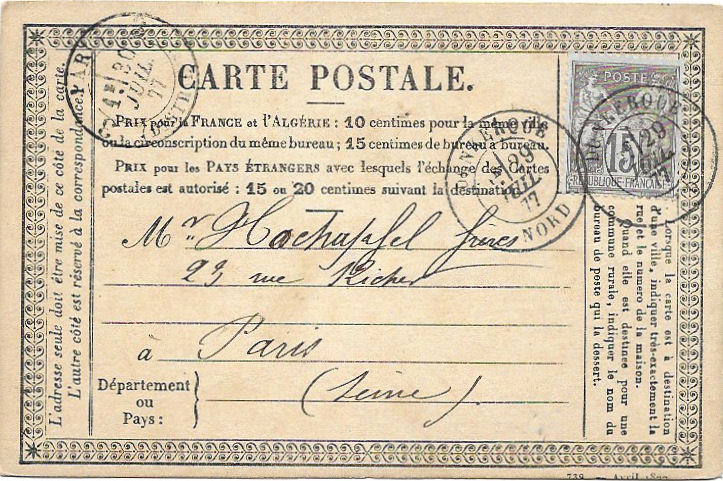 CARTE POSTALE.
PRIX pour la FRANCE et l'ALGÉRIE : 10 centimes pour la même ville
ou la circonscription du même bureau ; 15 centimes de bureau à bureau.
PRIX pour les PAYS ÉTRANGERS avec lesquels l'échange des Cartes
postales est autorisé : 15 ou 20 centimes suivant la destination.
Mr Hochapfel frères
23 rue Richer
à Paris
(Seine)
Département
ou
Pays :
L'adresse seule doit être mise de ce côté de la carte.
L'autre côté est réservé à la correspondance.
Lorsque la carte est à destination
d'une ville, indiquer très-exactement la
rue et le numéro de la maison.
Quand elle est destinée pour une
commune rurale, indiquer le nom du
bureau de poste qui la dessert.
PARIS
30
JUIL
77
DISTRIB
DUNKERQUE
29
JUIL
77
NORD
DUNKERQUE
29
JUIL
77
POSTES
15
REPUBLIQUE FRANÇAISE
739 — Avril 1877